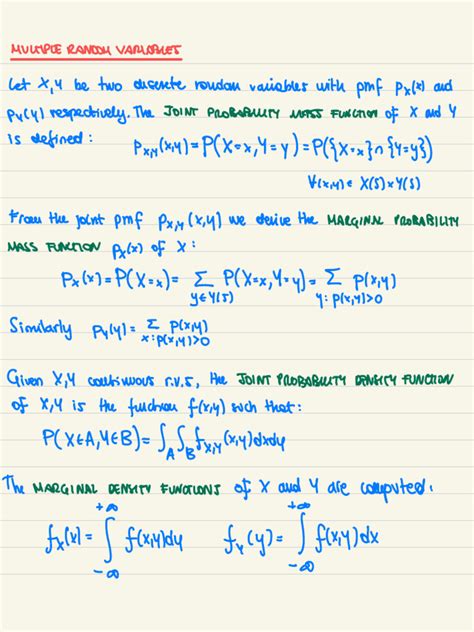 MULTIPLE RANDOM VARIABLES
Let X,Y be two discrete random variables with pmf p_X(x) and
p_Y(y) respectively. The JOINT PROBABILITY MASS FUNCTION of X and Y
is defined:
p_{X,Y}(x,y) = P(X=x, Y=y) = P({X=x} ∩ {Y=y})
∀(x,y) ∈ X(S)×Y(S)
From the joint pmf p_{X,Y}(x,y) we derive the MARGINAL PROBABILITY
MASS FUNCTION p_X(x) of X:
p_X(x) = P(X=x) = Σ_{y∈Y(S)} P(X=x, Y=y) = Σ_{y: p(x,y)>0} p(x,y)
Similarly p_Y(y) = Σ_{x: p(x,y)>0} p(x,y)
Given X,Y continuous r.v.s, the JOINT PROBABILITY DENSITY FUNCTION
of X,Y is the function f(x,y) such that:
P(X∈A, Y∈B) = ∫_A ∫_B f_{X,Y}(x,y) dx dy
The MARGINAL DENSITY FUNCTIONS of X and Y are computed:
f_X(x) = ∫_{-∞}^{+∞} f(x,y) dy f_Y(y) = ∫_{-∞}^{+∞} f(x,y) dx